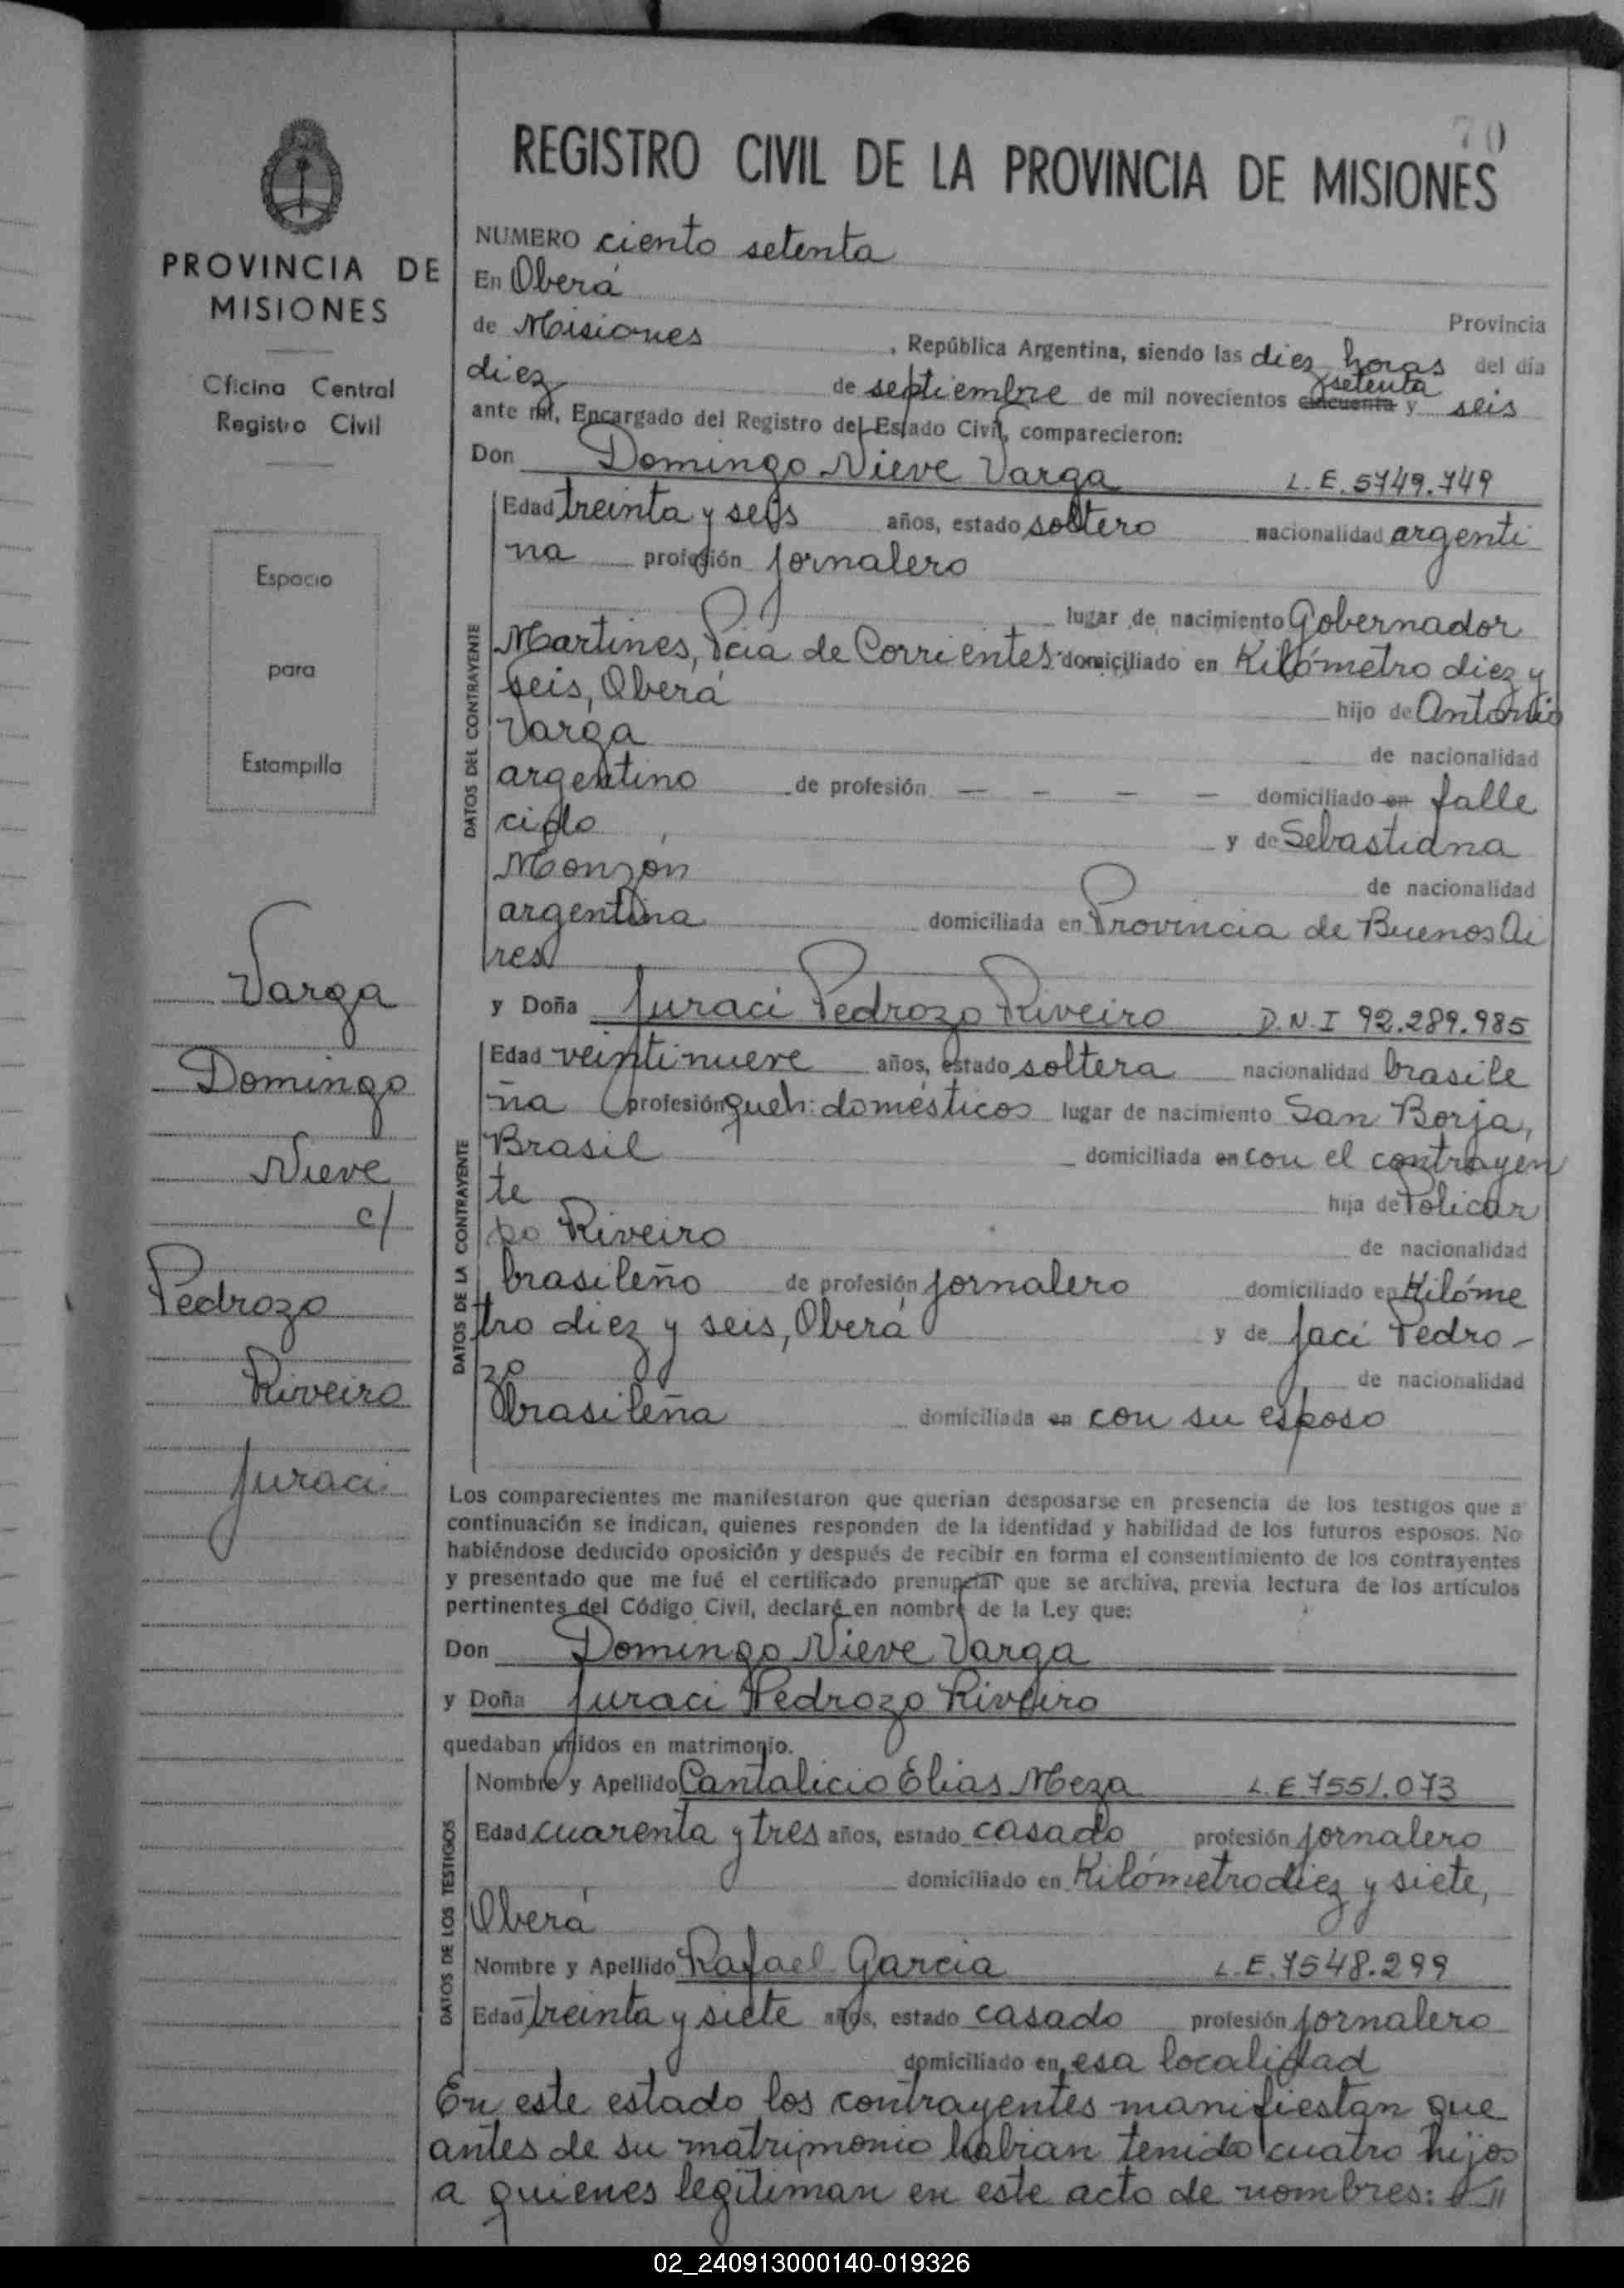 70
REGISTRO CIVIL DE LA PROVINCIA DE MISIONES
PROVINCIA DE
MISIONES
Oficina Central
Registro Civil
Espacio
para
Estampilla
Varga
Domingo
Nieve
c/
Pedrozo
Riveiro
Juraci
NUMERO ciento setenta
En Oberá Provincia
de Misiones, República Argentina, siendo las diez horas del día
diez de septiembre de mil novecientos cincuenta y setenta y seis
ante mí, Encargado del Registro del Estado Civil, comparecieron:
Don Domingo Nieve Varga L.E. 5749.749
DATOS DEL CONTRAYENTE
Edad treinta y seis años, estado soltero nacionalidad argenti
na profesión jornalero
lugar de nacimiento Gobernador
Martines, Pcia de Corrientes domiciliado en Kilómetro diez y
seis, Oberá hijo de Antonio
Varga de nacionalidad
argentino de profesión — — — — domiciliado en falle
cido y de Sebastiana
Monzón de nacionalidad
argentina domiciliada en Provincia de Buenos Ai
res
y Doña Juraci Pedrozo Riveiro D.N.I 92.289.985
DATOS DE LA CONTRAYENTE
Edad veintinueve años, estado soltera nacionalidad brasile
ña profesión queh: domésticos lugar de nacimiento San Borja,
Brasil domiciliada en con el contrayen
te hija de Policar
po Riveiro de nacionalidad
brasileño de profesión jornalero domiciliado en Kilóme
tro diez y seis, Oberá y de Jaci Pedro-
zo de nacionalidad
brasileña domiciliada en con su esposo
Los comparecientes me manifestaron que querian desposarse en presencia de los testigos que a
continuación se indican, quienes responden de la identidad y habilidad de los futuros esposos. No
habiéndose deducido oposición y después de recibir en forma el consentimiento de los contrayentes
y presentado que me fué el certificado prenupcial que se archiva, previa lectura de los artículos
pertinentes del Código Civil, declaré en nombre de la Ley que:
Don Domingo Nieve Varga
y Doña Juraci Pedrozo Riveiro
quedaban unidos en matrimonio.
DATOS DE LOS TESTIGOS
Nombre y Apellido Cantalicio Elias Meza L.E. 7551.073
Edad cuarenta y tres años, estado casado profesión jornalero
domiciliado en Kilómetro diez y siete,
Oberá
Nombre y Apellido Rafael Garcia L.E. 7548.299
Edad treinta y siete años, estado casado profesión jornalero
domiciliado en esa localidad
En este estado los contrayentes manifiestan que
antes de su matrimonio habian tenido cuatro hijos
a quienes legitiman en este acto de nombres:
02_240913000140-019326